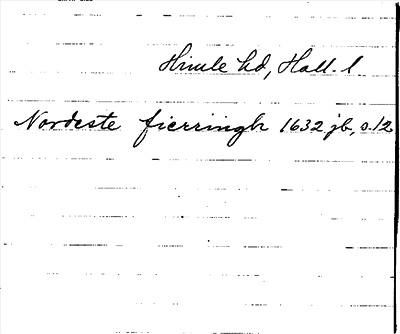 Himle hd, Hall. l
Nordeste fierringh 1632 jb, s.12